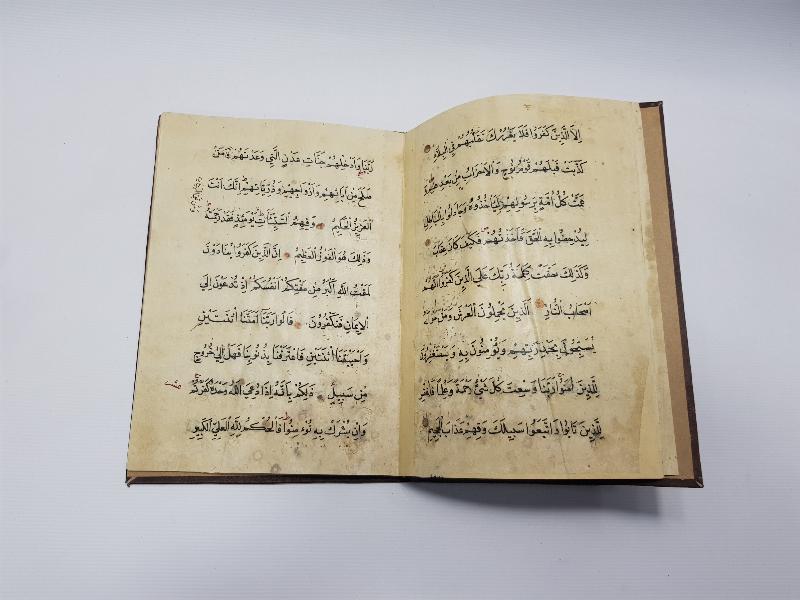 إلا الذين كفروا فلا يغررك تقلبهم في البلاد
كذبت قبلهم قوم نوح والأحزاب من بعدهم و
همت كل أمة برسولهم ليأخذوه وجادلوا بالباطل
ليدحضوا به الحق فأخذتهم فكيف كان عقاب
وكذلك حقت كلمة ربك على الذين كفروا أنهم
أصحاب النار الذين يحملون العرش ومن حوله
يسبحون بحمد ربهم ويؤمنون به ويستغفرون
للذين آمنوا ربنا وسعت كل شيء رحمة وعلما فاغفر
للذين تابوا واتبعوا سبيلك وقهم عذاب الجحيم
ربنا وأدخلهم جنات عدن التي وعدتهم ومن
صلح من آبائهم وأزواجهم وذرياتهم إنك أنت
العزيز الحكيم وقهم السيئات ومن تق السيئات يومئذ فقد رحمته
وذلك هو الفوز العظيم إن الذين كفروا ينادون
لمقت الله أكبر من مقتكم أنفسكم إذ تدعون إلى
الإيمان فتكفرون قالوا ربنا أمتنا اثنتين
وأحييتنا اثنتين فاعترفنا بذنوبنا فهل إلى خروج
من سبيل ذلكم بأنه إذا دعي الله وحده كفرتم
وإن يشرك به تؤمنوا فالحكم لله العلي الكبير